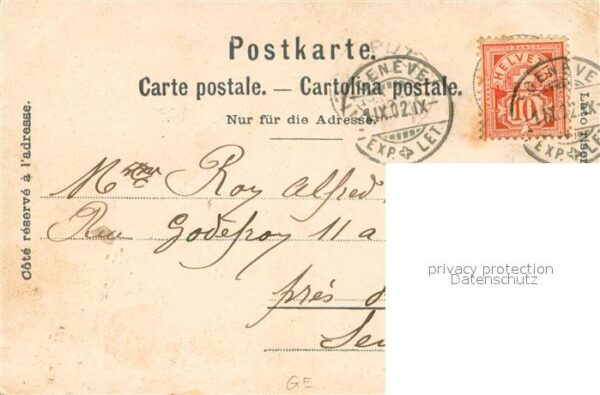 Postkarte.
Carte postale. — Cartolina postale.
Nur für die Adresse
Côté réservé à l'adresse.
Lato riser
HELVE
10
GENÈVE
1.IX.02.IX–
EXP. LET.
GENÈVE
1.IX.02.IX
EXP. LET
Roy Alfred
Rue Godefroy 11 a
près d
GE
privacy protection
Datenschutz